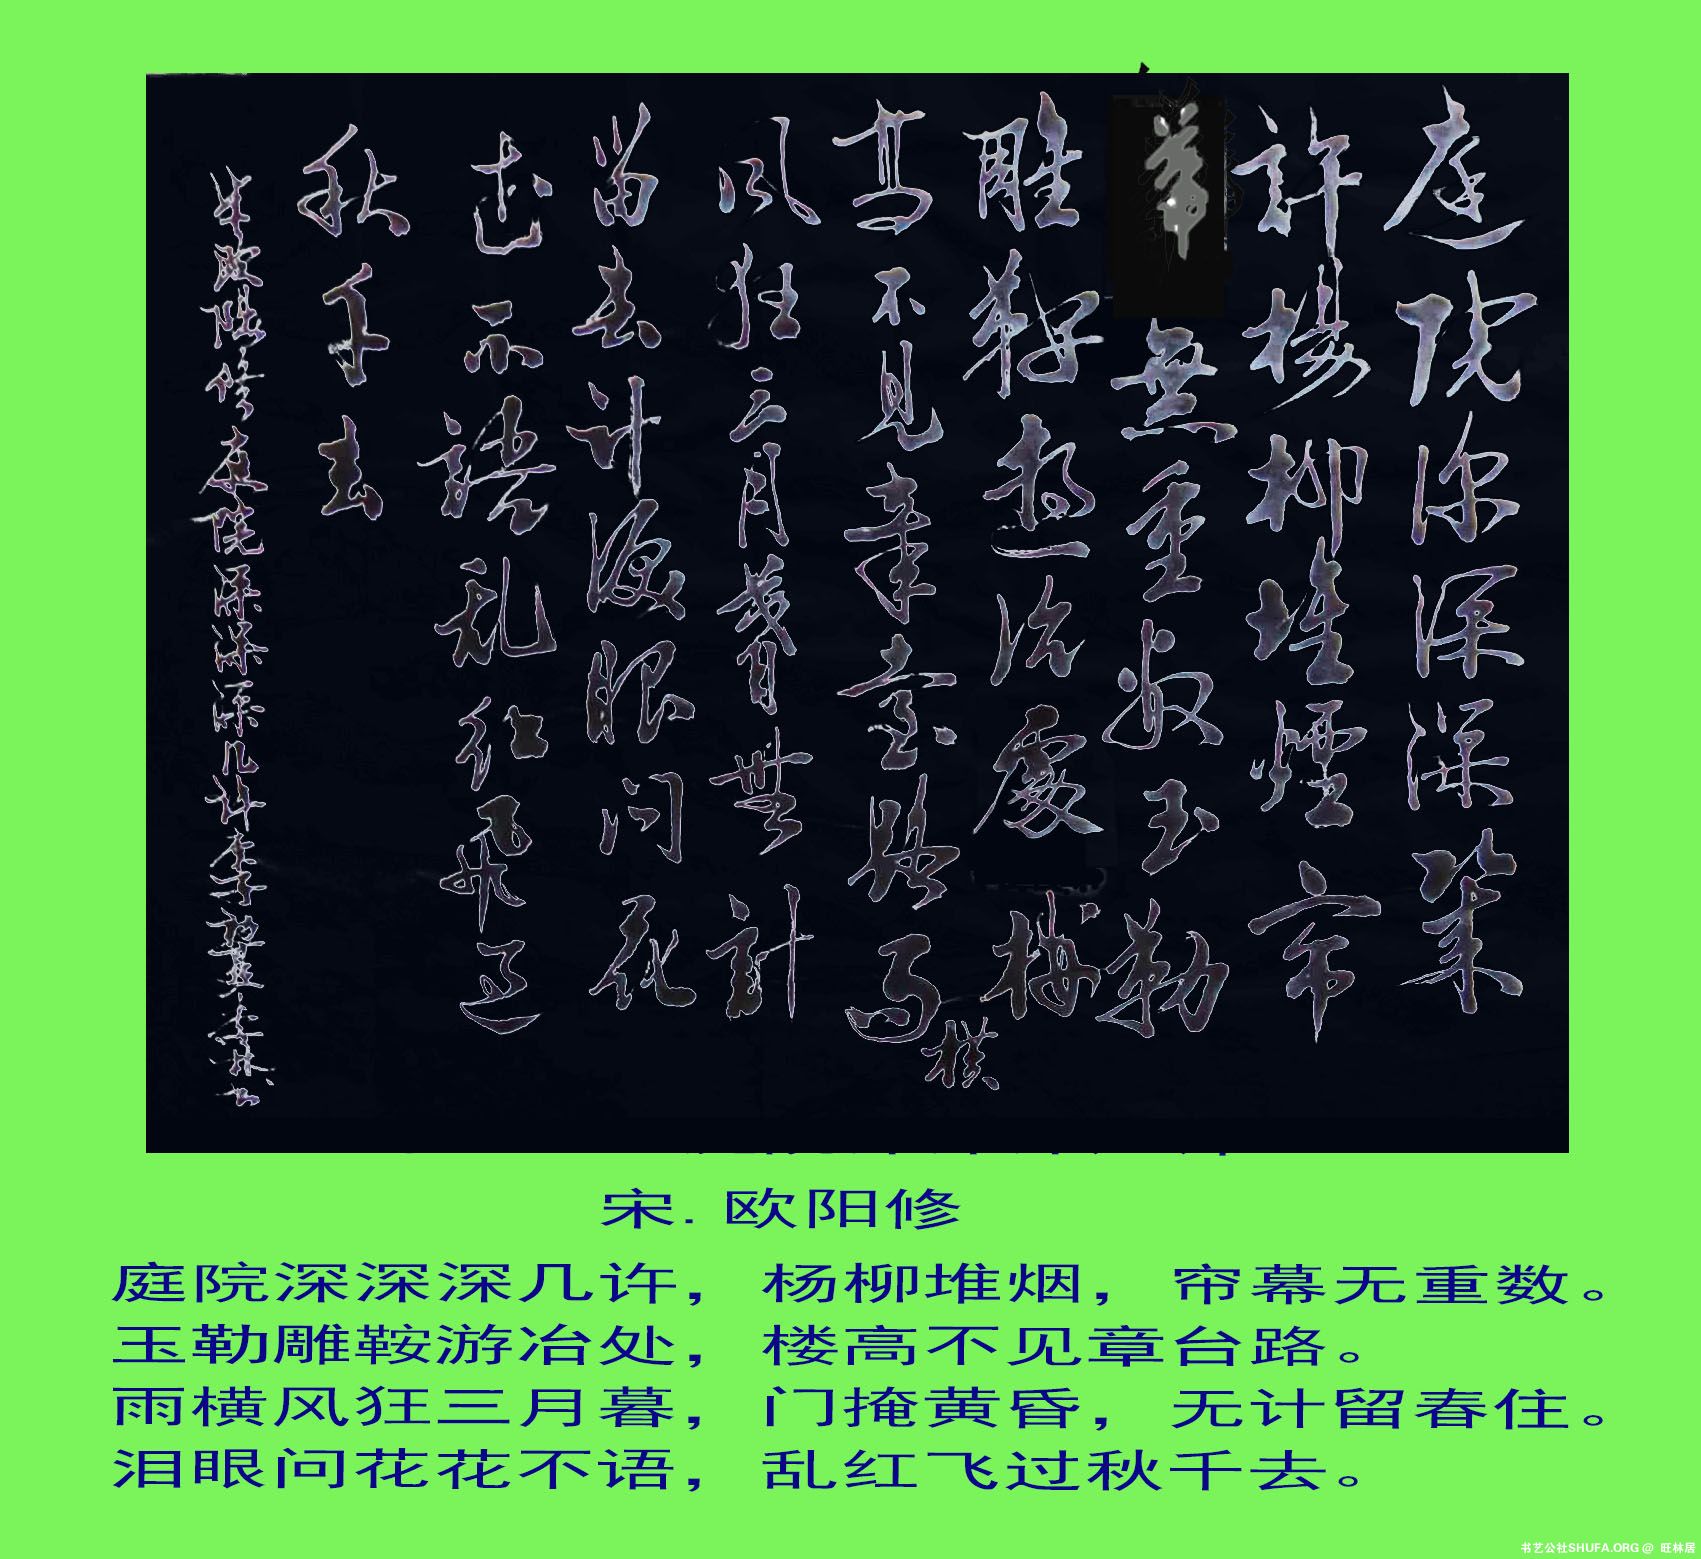 庭院深深深幾
許楊柳堆煙帘
幕無重數玉勒
雕鞍遊冶處
高不見章台路
風狂三月暮無計
留春計淚眼问花
花不語乱红飛过
秋千去
宋欧陽修庭院深深深几许李子
宋.欧阳修
庭院深深深几许，杨柳堆烟，帘幕无重数。
玉勒雕鞍游冶处，楼高不见章台路。
雨横风狂三月暮，门掩黄昏，无计留春住。
泪眼问花花不语，乱红飞过秋千去。
书艺公社SHUFA.ORG @ 旺林居